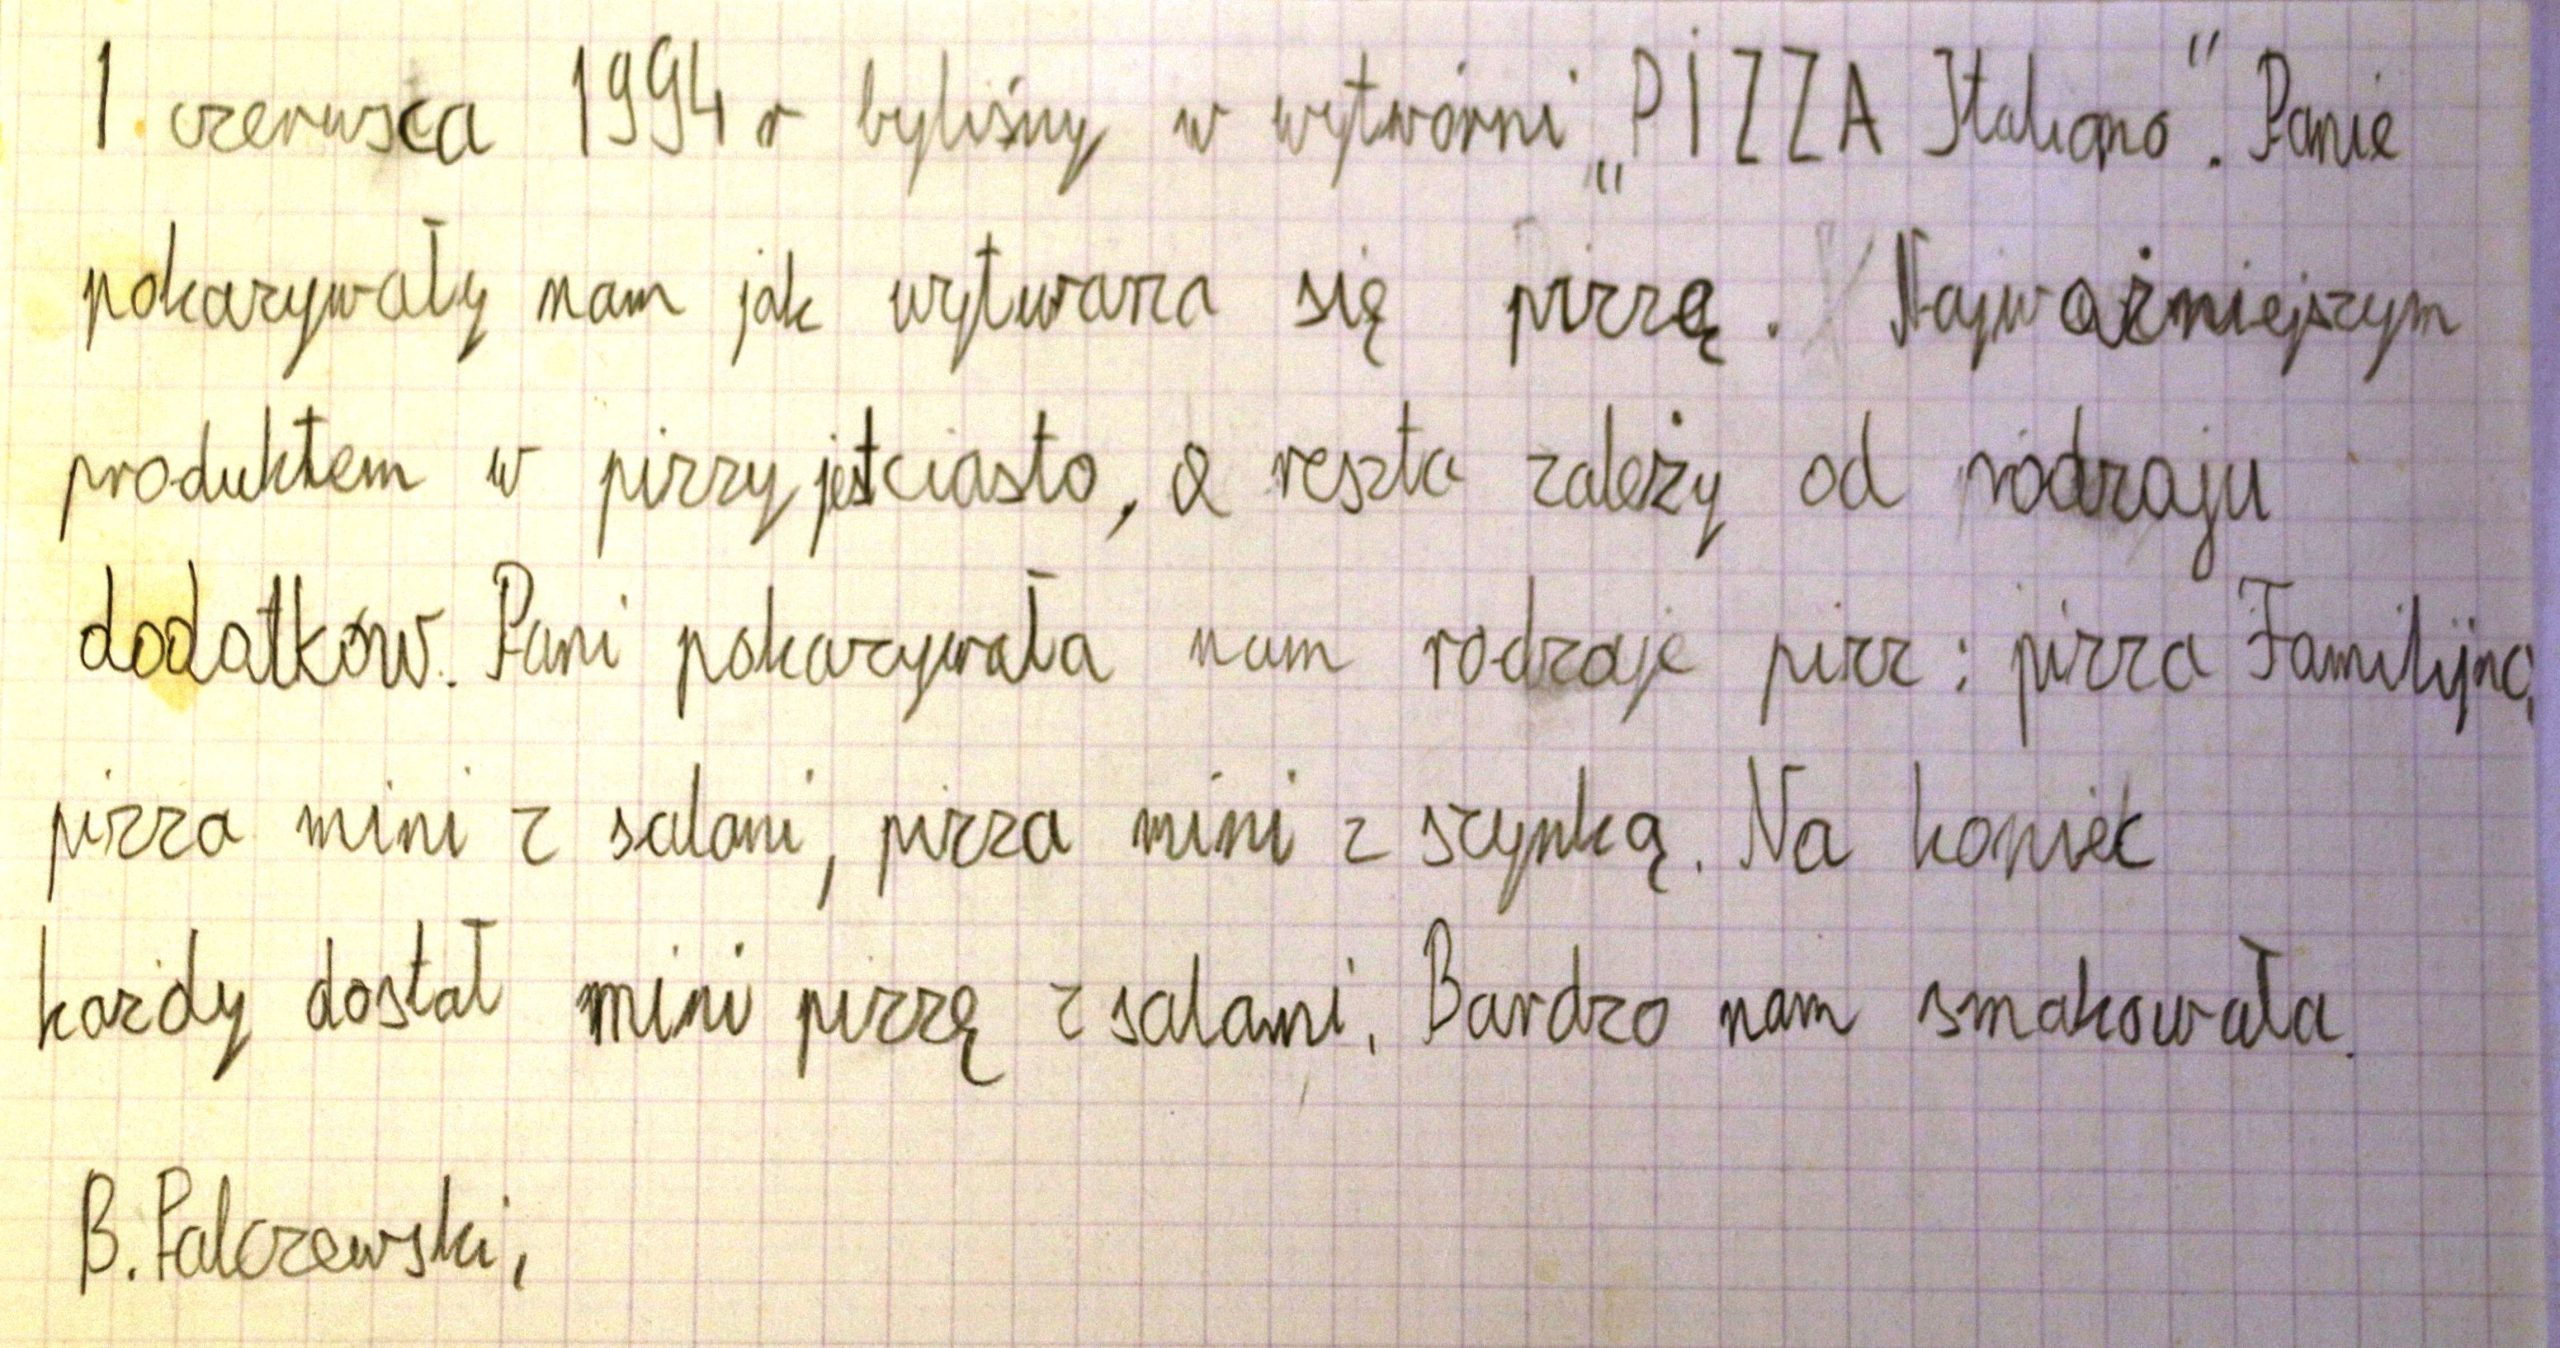 1. czerwsca 1994 r byliśmy w wytwórni „PIZZA Italiano”. Panie
pokazywały nam jak wytwarza się pizzę. Najważniejszym
produktem w pizzy jest ciasto, a reszta zależy od rodzaju
dodatków. Pani pokazywała nam rodzaje pizz: pizza Familijna,
pizza mini z salami, pizza mini z szynką. Na koniec
każdy dostał mini pizzę z salami. Bardzo nam smakowała.
B. Palczewski,